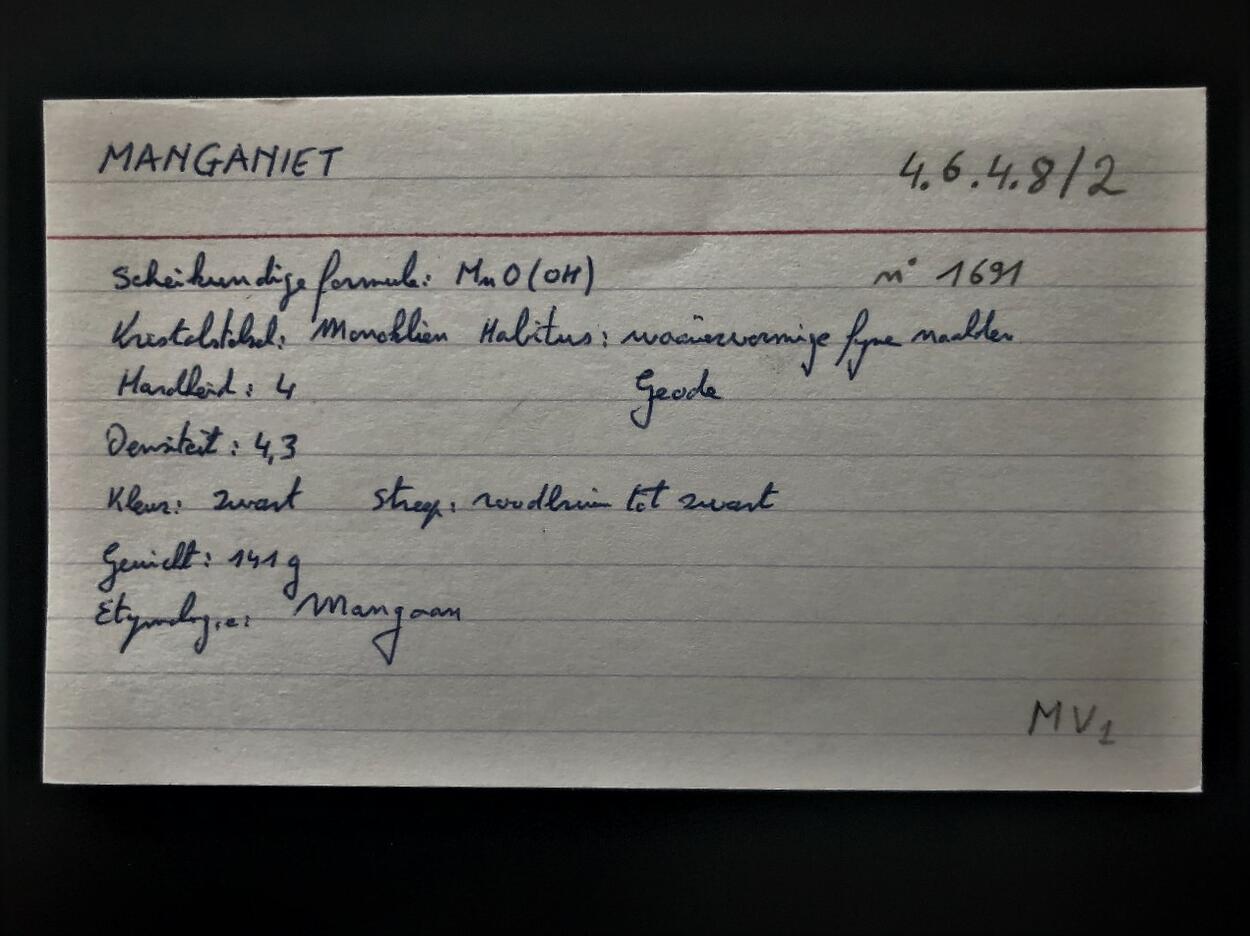 MANGANIET 4.6.4.8/2
Scheikundige formule: MnO(OH) n° 1691
Kristalstelsel: Monoklien Habitus: waaiervormige fyne naalden
Hardheid: 4 Geode
Densiteit: 4,3
Kleur: zwart Streep: roodbruin tot zwart
Gewicht: 141 g
Etymologie: Mangaan
MV1